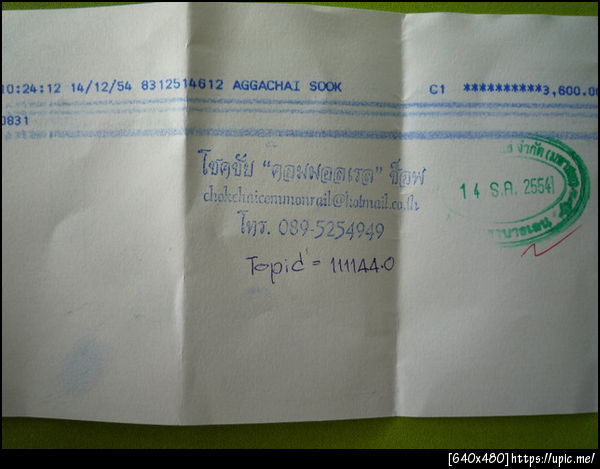 10:24:12 14/12/54 8312514612 AGGACHAI SOOK C1 **********3,600.00
0831
โชคชัย "คอมมอลเรล" ช็อพ
chokchaicommonrail@hotmail.co.th
โทร. 089-5254949
Topid = 111144.0
จำกัด (มหาชน)
14 ธ.ค. 2554
[640x480]https://upic.me/